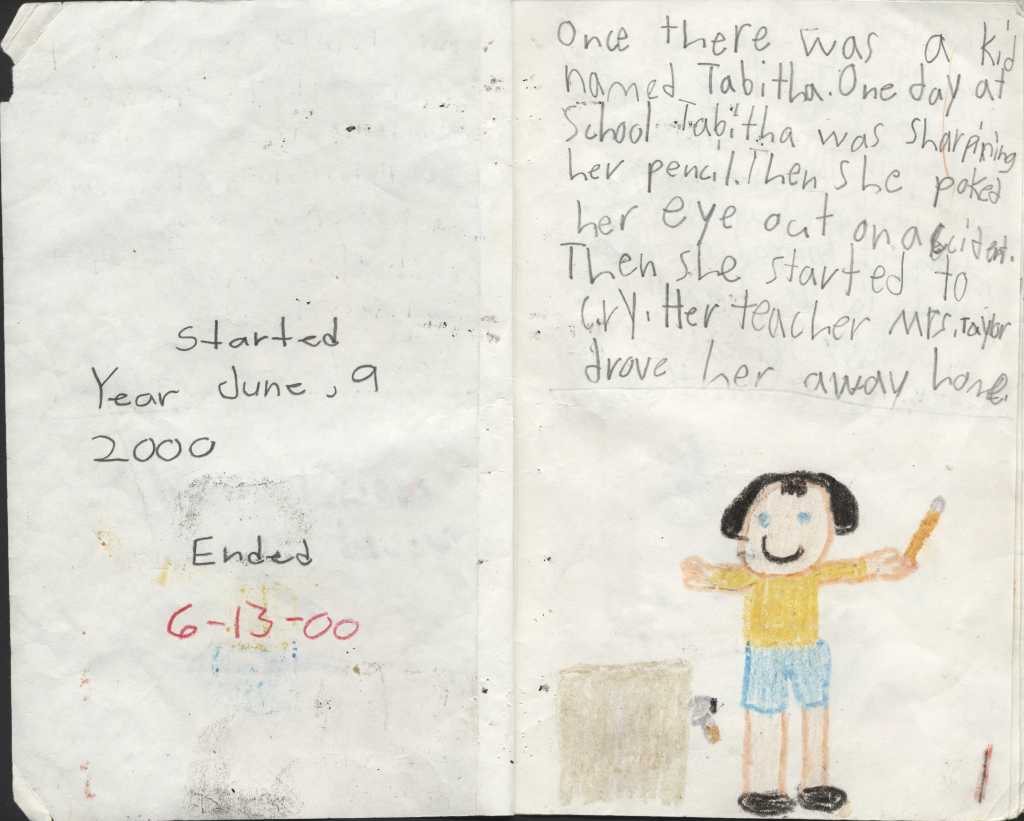 Started
Year June, 9
2000
Ended
6-13-00
Once there was a kid
named Tabitha. One day at
School Tabitha was sharpining
her pencil. Then she poked
her eye out on accident.
Then she started to
Cry. Her teacher Mrs. Taylor
drove her away home.
1